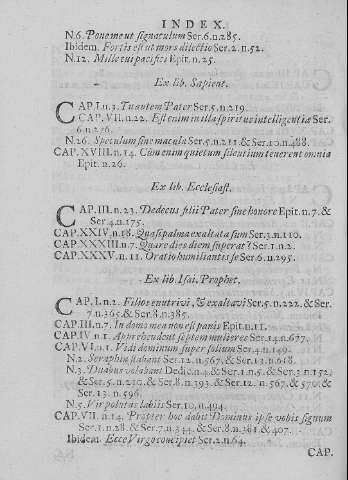 INDEX.
N.6. Pone me ut signaculum Ser.6.n.285.
Ibidem. Fortis est ut mors dilectio Ser.2.n.52.
N.12. Mille tui pacifici Epit.n.25.
Ex lib. Sapient.
CAP.I.n.3. Tu autem Pater Ser.5.n.219.
CAP.VII.n.22. Est enim in illa spiritus intelligentiæ Ser.
6.n.256.
N.26. Speculum sine macula Ser.5.n.211.& Ser.10.n.488.
CAP.XVIII.n.14. Cum enim quietum silentium tenerent omnia
Epit.n.26.
Ex lib. Ecclesiast.
CAP.III.n.23. Dedecus filii Pater sine honore Epit.n.7.&
Ser.4.n.175.
CAP.XXIV.n.18. Quasi palma exaltata sum Ser.3.n.110.
CAP.XXXIII.n.7. Quare dies diem superat? Ser.1.n.2.
CAP.XXXV.n.11. Oratio humiliantis se Ser.6.n.295.
Ex lib. Isai. Prophet.
CAP.I.n.2. Filios enutrivi, & exaltavi Ser.5.n.222.& Ser.
7.n.365.& Ser.8.n.385.
CAP.III.n.7. In domo mea non est panis Epit.n.11.
CAP.IV.n.1. Apprehendent septem mulieres Ser.14.n.677.
CAP.VI.n.1. Vidi dominum super solium Ser.4.n.149.
N.2. Seraphim stabant Ser.12.n.567.& Ser.13.n.618.
N.3. Duabus volabant Dedic.n.4.& Ser.1.n.5.& Ser.3.n.152.
& Ser.5.n.210.& Ser.8.n.393.& Ser.12.n.567.& 570.&
Ser.13.n.596.
N.5. Vir pollutus labiis Ser.10.n.494.
CAP.VII.n.14. Propter hoc dabit Dominus ipse vobis signum
Ser.1.n.28.& Ser.7.n.344.& Ser.8.n.391.& 407.
Ibidem. Ecce Virgo concipiet Ser.2.n.64.
CAP.